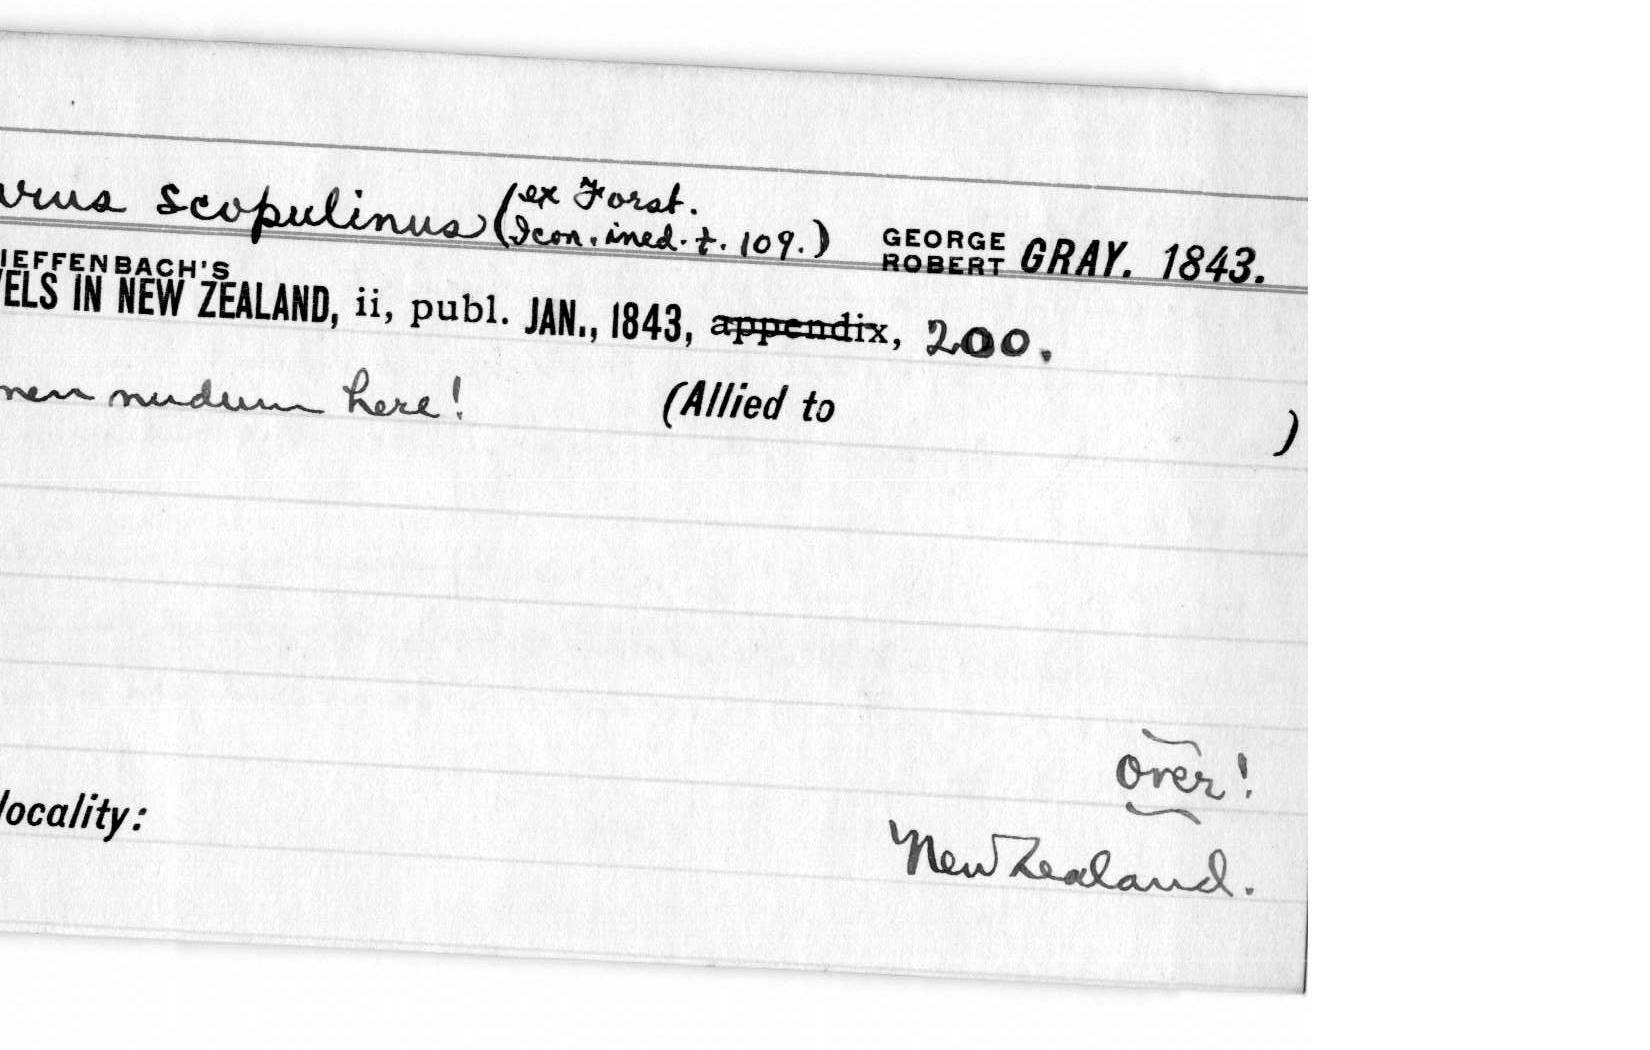 arus scopulinus (ex Forst. Icon. ined. t. 109.) GEORGE ROBERT GRAY. 1843.
IEFFENBACH'S
VELS IN NEW ZEALAND, ii, publ. JAN., 1843, appendix, 200.
men nudum here! (Allied to )
over!
locality: New Zealand.